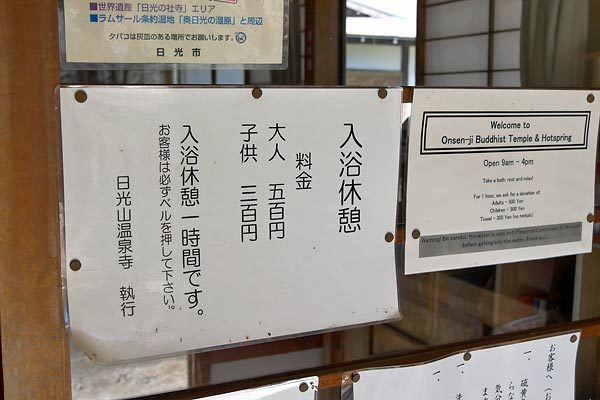 ■世界遺産「日光の社寺」エリア
■ラムサール条約湿地「奥日光の湿原」と周辺
タバコは灰皿のある場所でお願いします。
日光市
入浴休憩
料金
大人 五百円
子供 三百円
入浴休憩一時間です。
お客様は必ずベルを押して下さい。
日光山温泉寺 執行
Welcome to
Onsen-ji Buddhist Temple & Hotspring
Open 9am - 4pm
Take a bath, rest and relax!
For 1 hour, we ask for a donation of
Adults - 500 Yen
Children - 300 Yen
Towel - 300 Yen (no rentals)
Warning! Be careful, the water is very hot! Please add cold water to the bath
before getting into the water. Thank you.
お客様へ
一、硫黄
らな
気分
一、